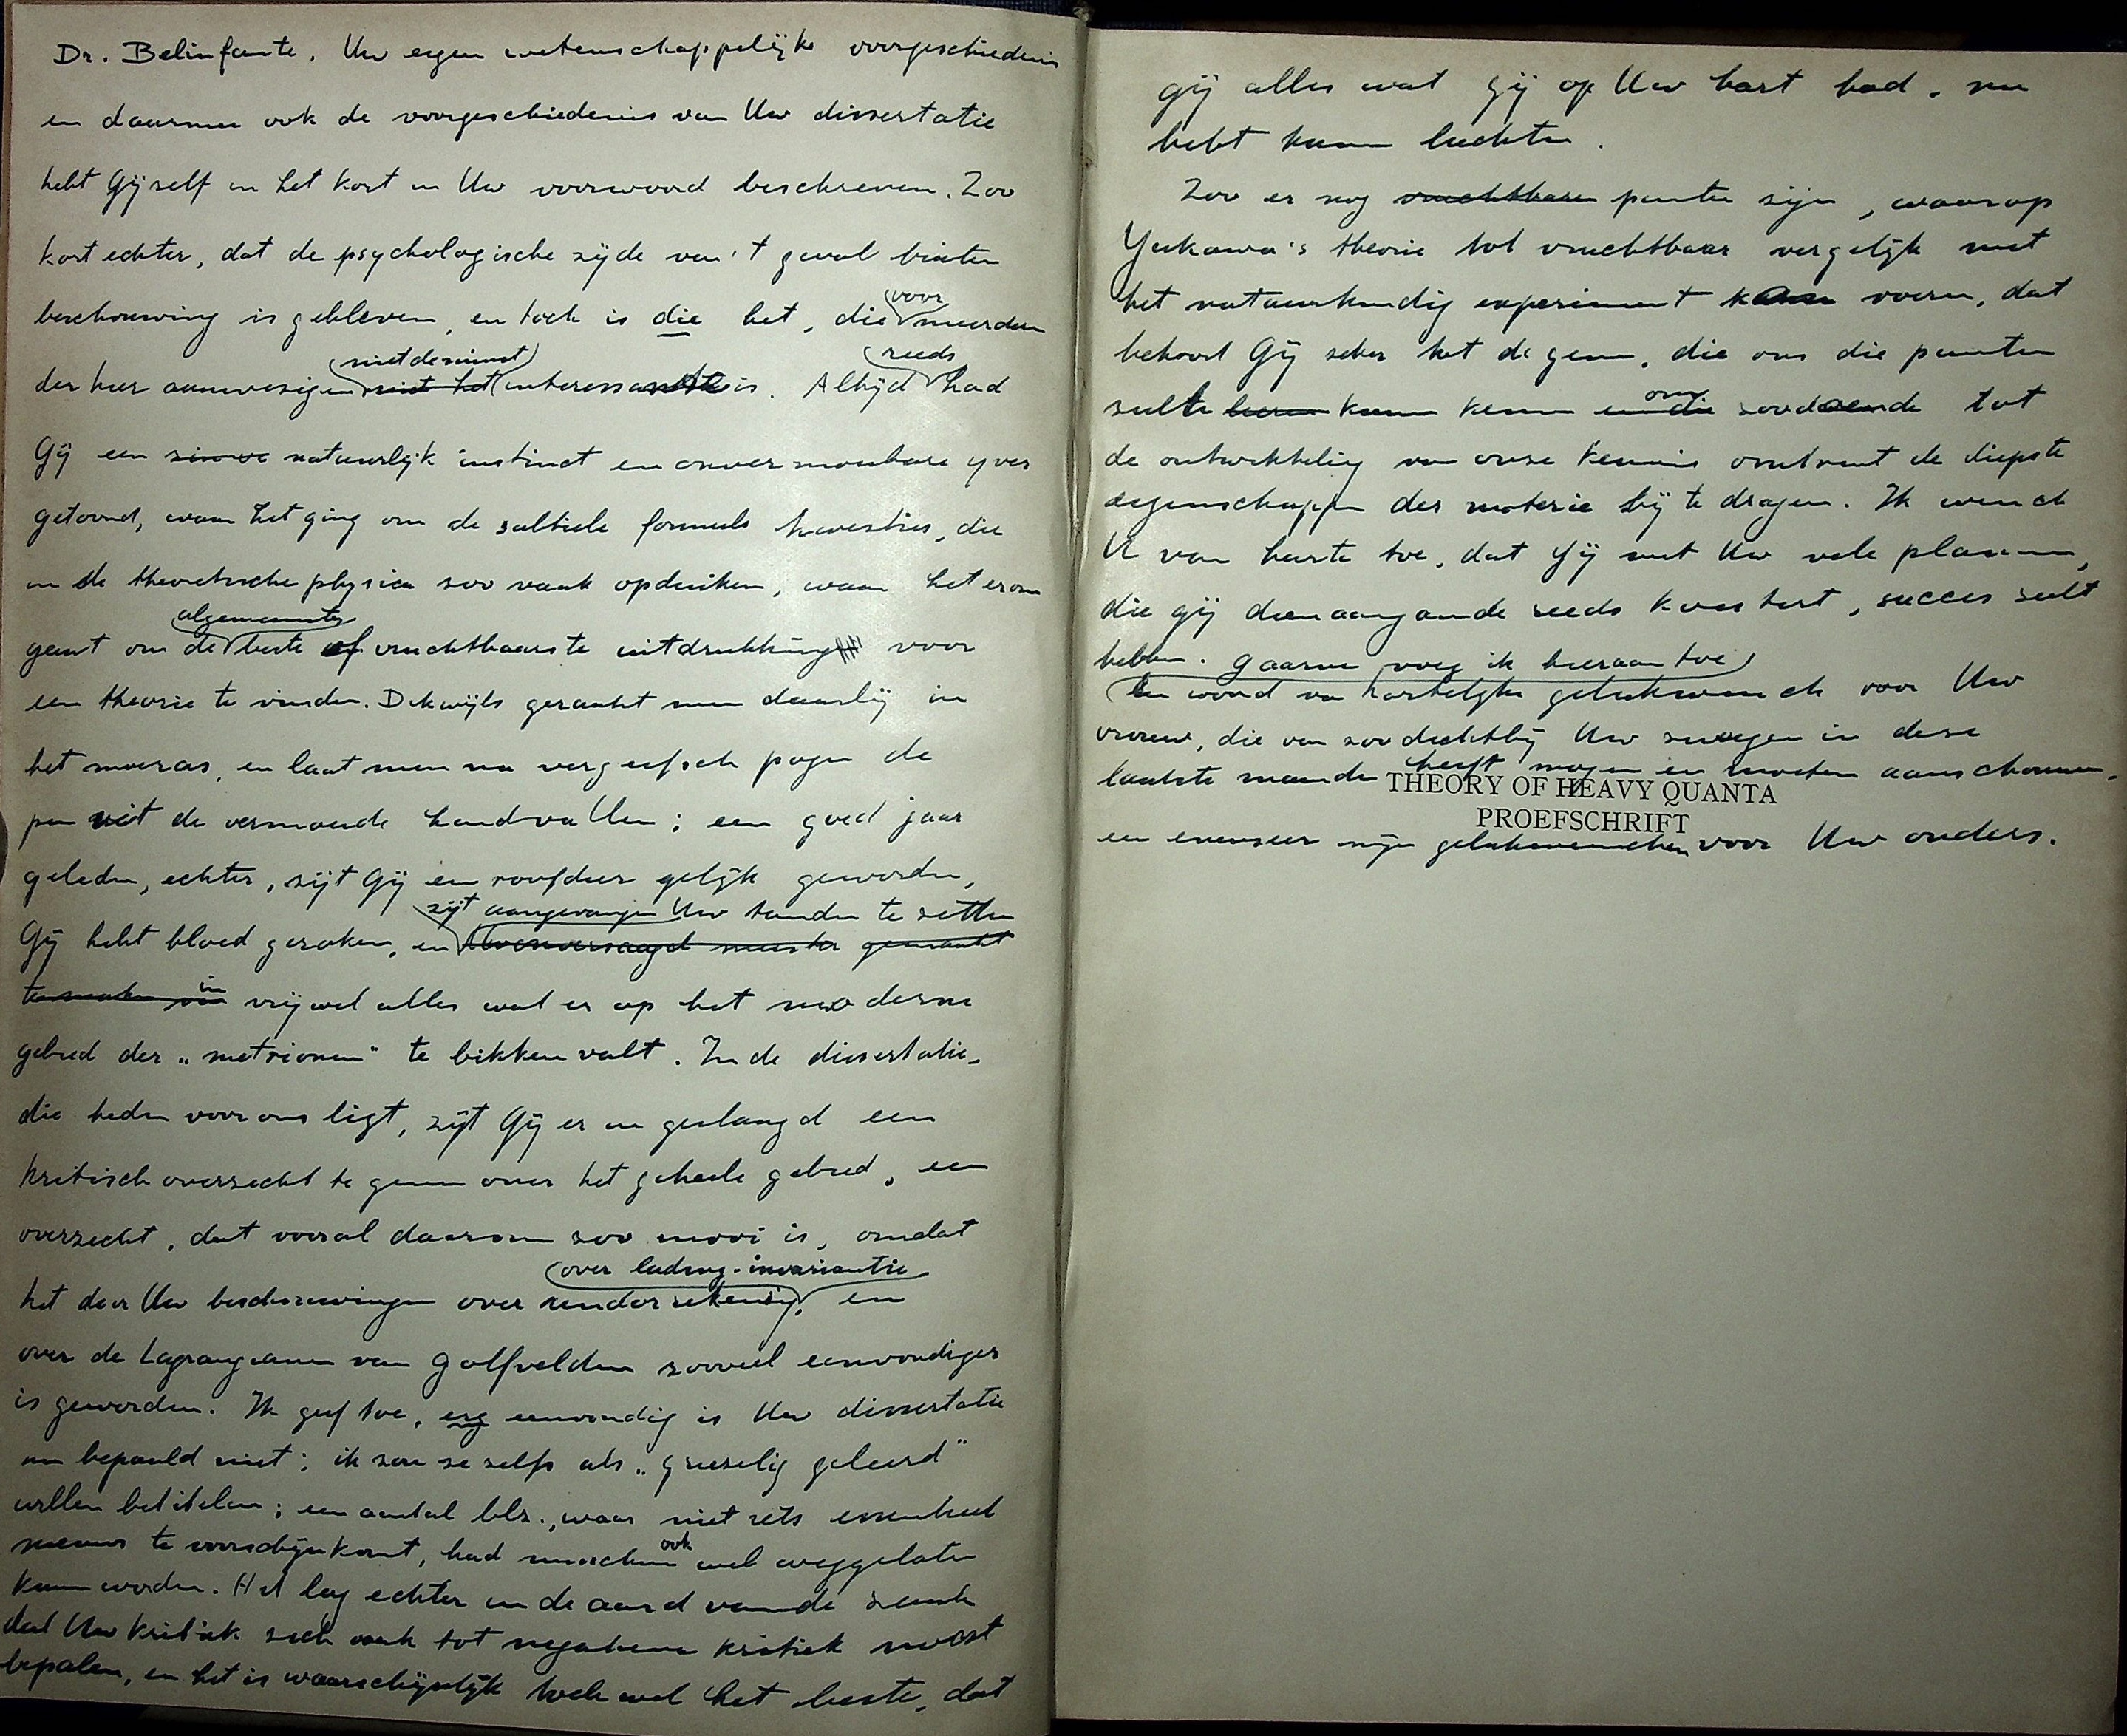 Dr. Belinfante, Uw eigen wetenschappelijke voorgeschiedenis
en daarmee ook de voorgeschiedenis van Uw dissertatie
hebt Gij zelf in het kort in Uw voorwoord beschreven. Zoo
kort echter, dat de psychologische zijde van 't geval buiten
beschouwing is gebleven, en toch is die het, die voor meerdere
der hier aanwezigen niet het niet de minst interessante is. Altijd reeds had
Gij een natuurlijk instinct en onvermoeibare ijver
getoond, waar het ging om de subtiele formeele kwesties, die
in de theoretische physica zoo vaak opduiken, waar het erom
gaat om de algemeenste beste of vruchtbaarste uitdrukking voor
een theorie te vinden. Dikwijls geraakt men daarbij in
het moeras, en laat men na vergeefsch pogen de
pen uit de vermoeide hand vallen; een goed jaar
geleden, echter, zijt Gij een roofdier gelijk geworden,
zijt aangevangen Uw tanden te zetten
Gij hebt bloed geroken, en onversaagd meester gemaakt
in vrijwel alles wat er op het moderne
gebied der „metrionen" te bikken valt. In de dissertatie,
die heden voor ons ligt, zijt Gij er in geslaagd een
kritisch overzicht te geven over het geheele gebied, een
overzicht, dat vooral daarom zoo mooi is, omdat
over lading-invariantie
het door Uw beschouwingen over undorrekening, en
over de Lagrangianen van golfvelden zooveel eenvoudiger
is geworden. Ik geef toe, erg eenvoudig is Uw dissertatie
nu bepaald niet; ik zou ze zelfs als „griezelig geleerd"
willen betitelen; een aantal blz., waar niet iets essentieel
nieuws te voorschijn komt, had misschien ook wel weggelaten
kunnen worden. Het lag echter in de aard van de zaak
dat Uw kritiek zich vaak tot negatieve kritiek moest
bepalen, en het is waarschijnlijk toch wel het beste, dat
gij alles wat gij op Uw hart had, nu
hebt kunnen luchten.
Zoo er nog vruchtbare punten zijn, waarop
Yukawa's theorie tot vruchtbaar vergelijk met
het natuurkundig experiment kan voeren, dat
behoort Gij zeker tot de genen, die ons die punten
zult kunnen om zoodoende tot
de ontwikkeling van onze kennis omtrent de diepste
eigenschappen der materie bij te dragen. Ik wensch
U van harte toe, dat Gij met Uw vele plannen,
die gij dienaangaande reeds koestert, succes zult
hebben. Gaarne voeg ik hieraan toe
een woord van hartelijke gelukwensch voor Uw
vrouw, die van zoo dichtbij Uw zwoegen in deze
laatste maanden heeft mogen en moeten aanschouwen,
THEORY OF HEAVY QUANTA
PROEFSCHRIFT
en evenzeer mijn gelukwenschen voor Uw ouders.